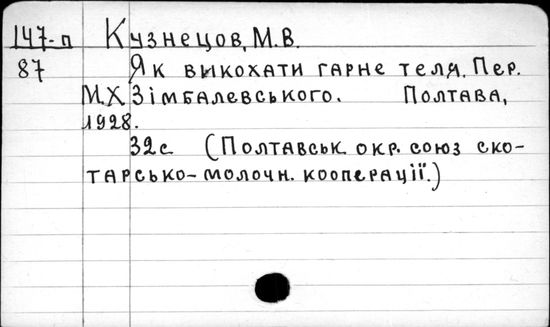 147-п Кузнецов, М.В.
87 Як викохати гарне теля. Пер.
М.Х Зімбалевського. Полтава,
1928.
32с (Полтавськ. окр. союз ско-
тарсько-молочн. кооперації.)